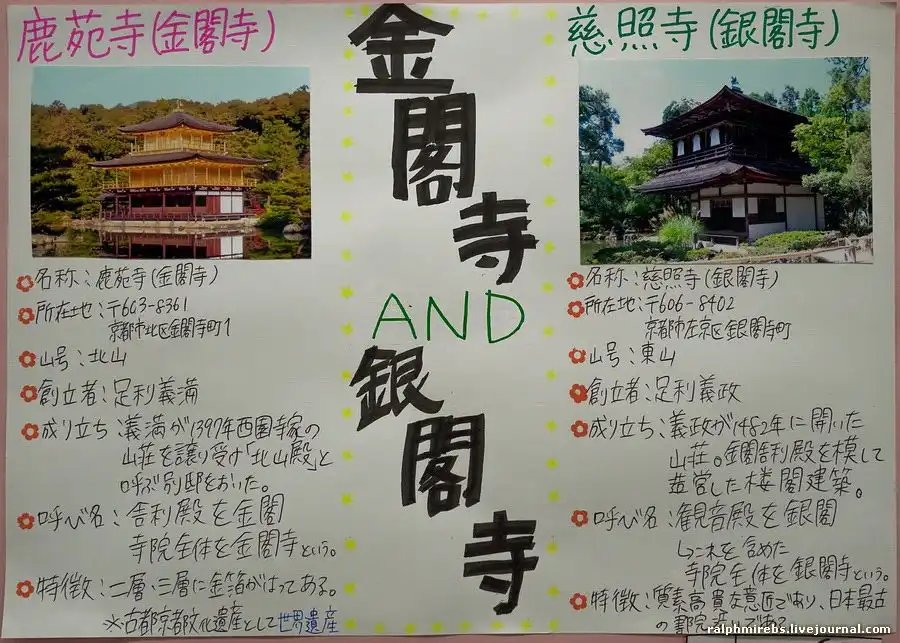 鹿苑寺(金閣寺)
名称:鹿苑寺(金閣寺)
所在地:〒603-8361
京都市北区金閣寺町1
山号:北山
創立者:足利義満
成り立ち:義満が1397年西園寺家の
山荘を譲り受け「北山殿」と
呼ぶ別邸をおいた。
呼び名:舎利殿を金閣
寺院全体を金閣寺という。
特徴:二層・三層に金箔がはってある。
※古都京都文化遺産として世界遺産
金閣寺
AND
銀閣寺
慈照寺(銀閣寺)
名称:慈照寺(銀閣寺)
所在地:〒606-8402
京都市左京区銀閣寺町
山号:東山
創立者:足利義政
成り立ち:義政が1482年に開いた
山荘。金閣舎利殿を模して
造営した楼閣建築。
呼び名:観音殿を銀閣
↳これを含めた
寺院全体を銀閣寺という。
特徴:質素高貴な意匠であり、日本最古
の
ralphmirebs.livejournal.com